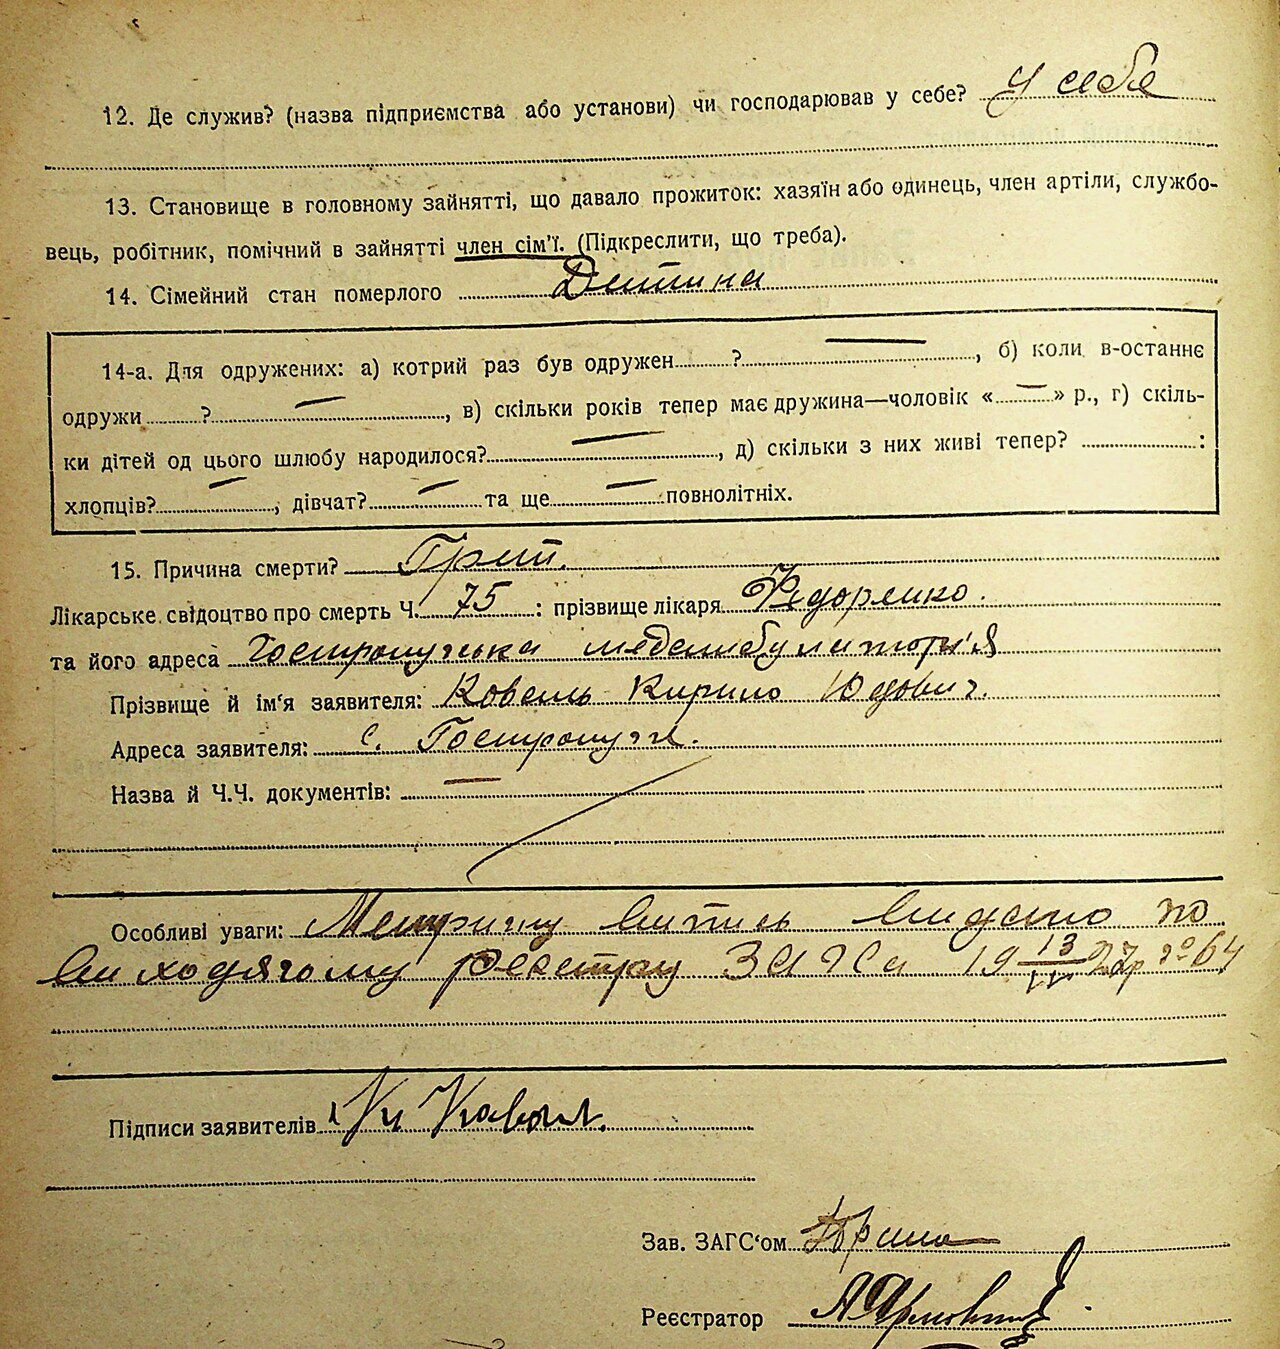 12. Де служив? (назва підприємства або установи) чи господарював у себе? у себе
13. Становище в головному зайнятті, що давало прожиток: хазяїн або одинець, член артіли, службо-
вець, робітник, помічний в зайнятті член сім'ї. (Підкреслити, що треба).
14. Сімейний стан померлого Дитина
14-а. Для одружених: а) котрий раз був одружен ? —, б) коли в-останнє
одружи ? —, в) скільки років тепер має дружина—чоловік « — » р., г) скіль-
ки дітей од цього шлюбу народилося? —, д) скільки з них живі тепер? :
хлопців? —, дівчат? — та ще — повнолітніх.
15. Причина смерти? Грип.
Лікарське свідоцтво про смерть Ч. 75 : прізвище лікаря Федоренко.
та його адреса медамбулаторія
Прізвище й ім'я заявителя: Коваль Кирило Юдович.
Адреса заявителя: с.
Назва й Ч.Ч. документів: —
Особливі уваги: Метричну випись видано по
виходячому реєстру ЗАГСа 19 13/IV 27р № 64
Підписи заявителів Коваль.
Зав. ЗАГС'ом
Реєстратор